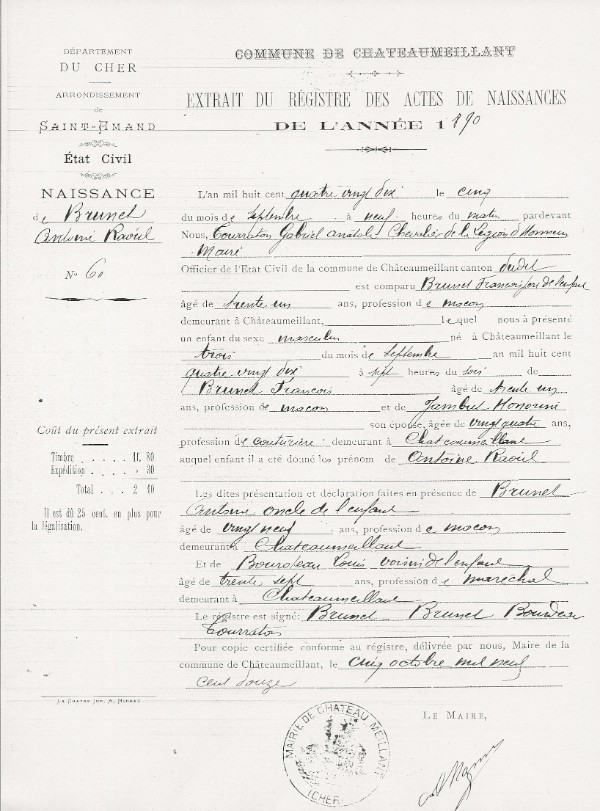 DÉPARTEMENT
DU CHER
ARRONDISSEMENT
de
SAINT-AMAND
État Civil
NAISSANCE
de Brunet
Antoine Raoul
N° 60
Coût du présent extrait
Timbre . . . . . 1f. 80
Expédition . . . . » 30
Total . . . 2 10
Il est dû 25 cent. en plus pour
la légalisation.
LA CHATRE IMP. A.
COMMUNE DE CHATEAUMEILLANT
EXTRAIT DU RÉGISTRE DES ACTES DE NAISSANCES
DE L'ANNÉE 1890
L'an mil huit cent quatre vingt dix le cinq
du mois de Septembre à neuf heures du matin pardevant
Nous, Tourraton Gabriel Anatole Chevalier de la Légion d'Honneur
Maire
Officier de l'Etat Civil de la commune de Châteaumeillant canton dudit
est comparu Brunet François père de l'enfant
âgé de trente un ans, profession de maçon
demeurant à Châteaumeillant, lequel nous à présenté
un enfant du sexe masculin né à Châteaumeillant le
trois du mois de Septembre an mil huit cent
quatre vingt dix à sept heures du soir de
Brunet François âgé de trente un
ans, profession de maçon et de Jambut Honorine
son épouse, âgée de vingt quatre ans,
profession de couturière demeurant à Chateaumeillant
auquel enfant il a été donné les prénom de Antoine Raoul
Les dites présentation et déclaration faites en présence de Brunet
Antoine oncle de l'enfant
âgé de vingt neuf ans, profession de maçon
demeurant à Chateaumeillant
Et de Bourdeau Louis voisin de l'enfant
âgé de trente sept ans, profession de maréchal
demeurant à Chateaumeillant
Le régistre est signé: Brunet Brunet Bourdeau
Tourraton
Pour copie certifiée conforme au régistre, délivrée par nous, Maire de la
commune de Châteaumeillant, le cinq octobre mil neuf
cent douze
LE MAIRE,
MAIRIE DE CHATEAUMEILLANT
(CHER)